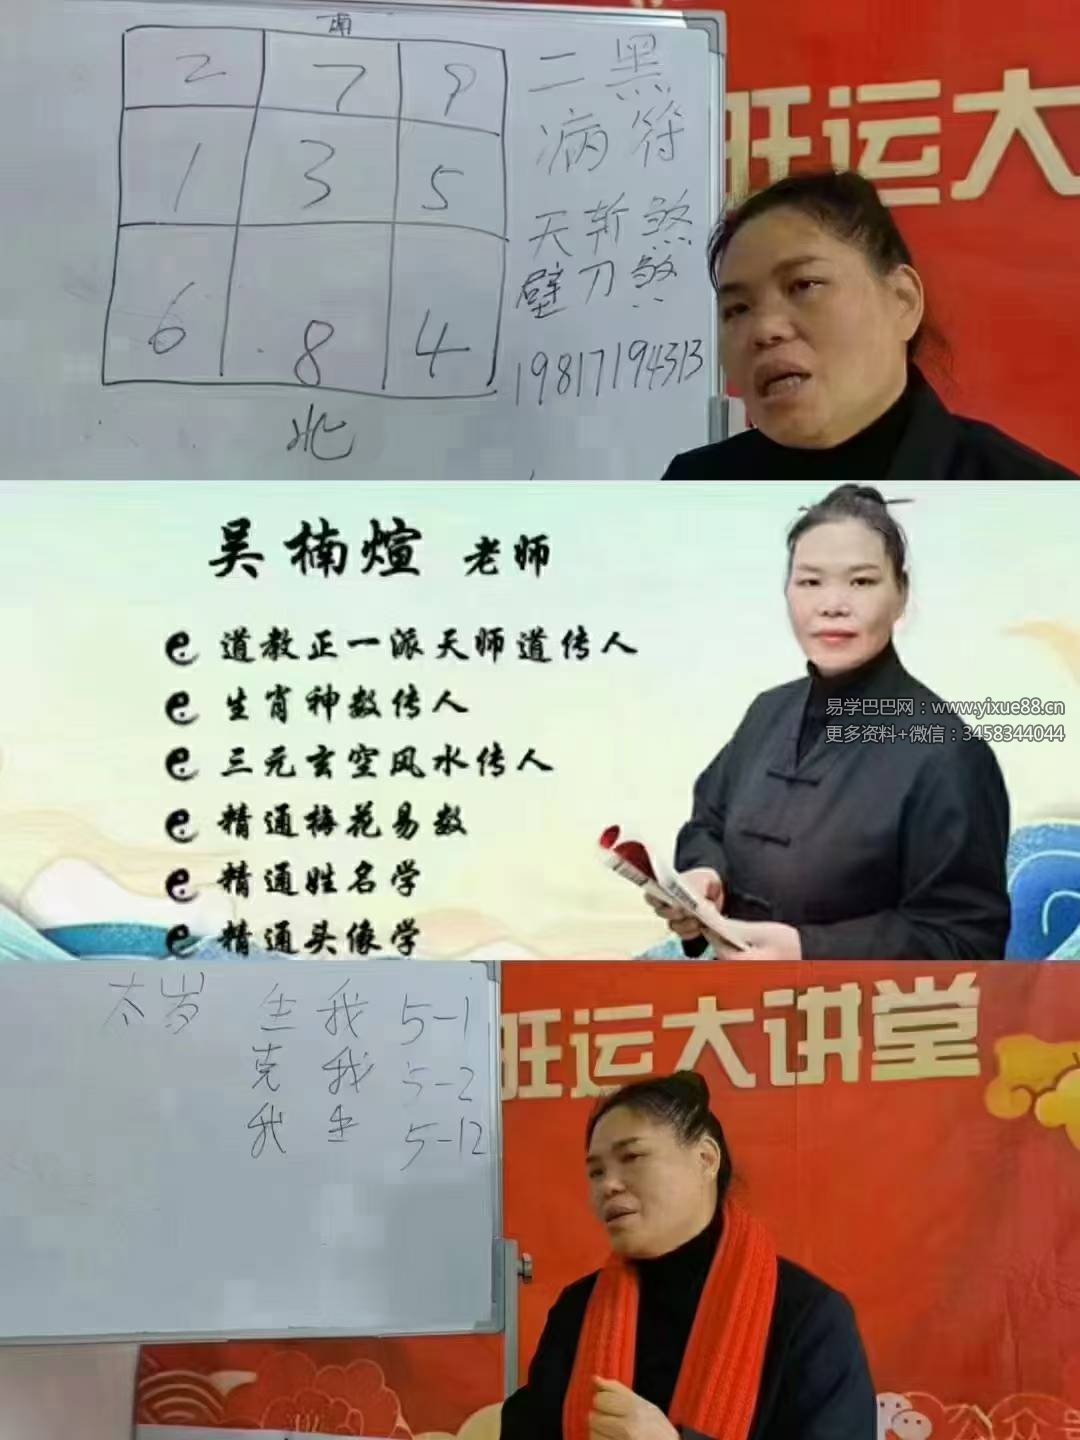 南
2 7 9
1 3 5
6 8 4
北
二黑
病符
天斩煞
壁刀煞
19817194313
旺运大
吴楠煊 老师
道教正一派天师道传人
生肖神数传人
三元玄空风水传人
精通梅花易数
精通姓名学
精通头像学
易学巴巴网：www.yixue88.cn
更多资料+微信：3458344044
太岁 生我 5-1
克我 5-2
我生 5-12
旺运大讲堂
公众号